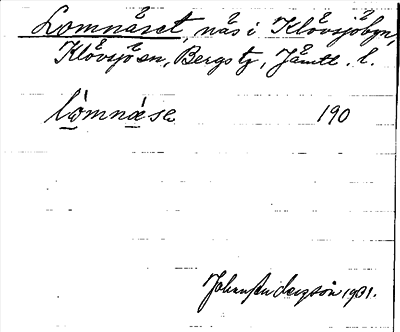 Lomnäset, näs i Klövsjöbyn,
Klövsjö sn, Bergs tg, Jämtl. l.
lòmnäse 190
Johan Andersson 1931.